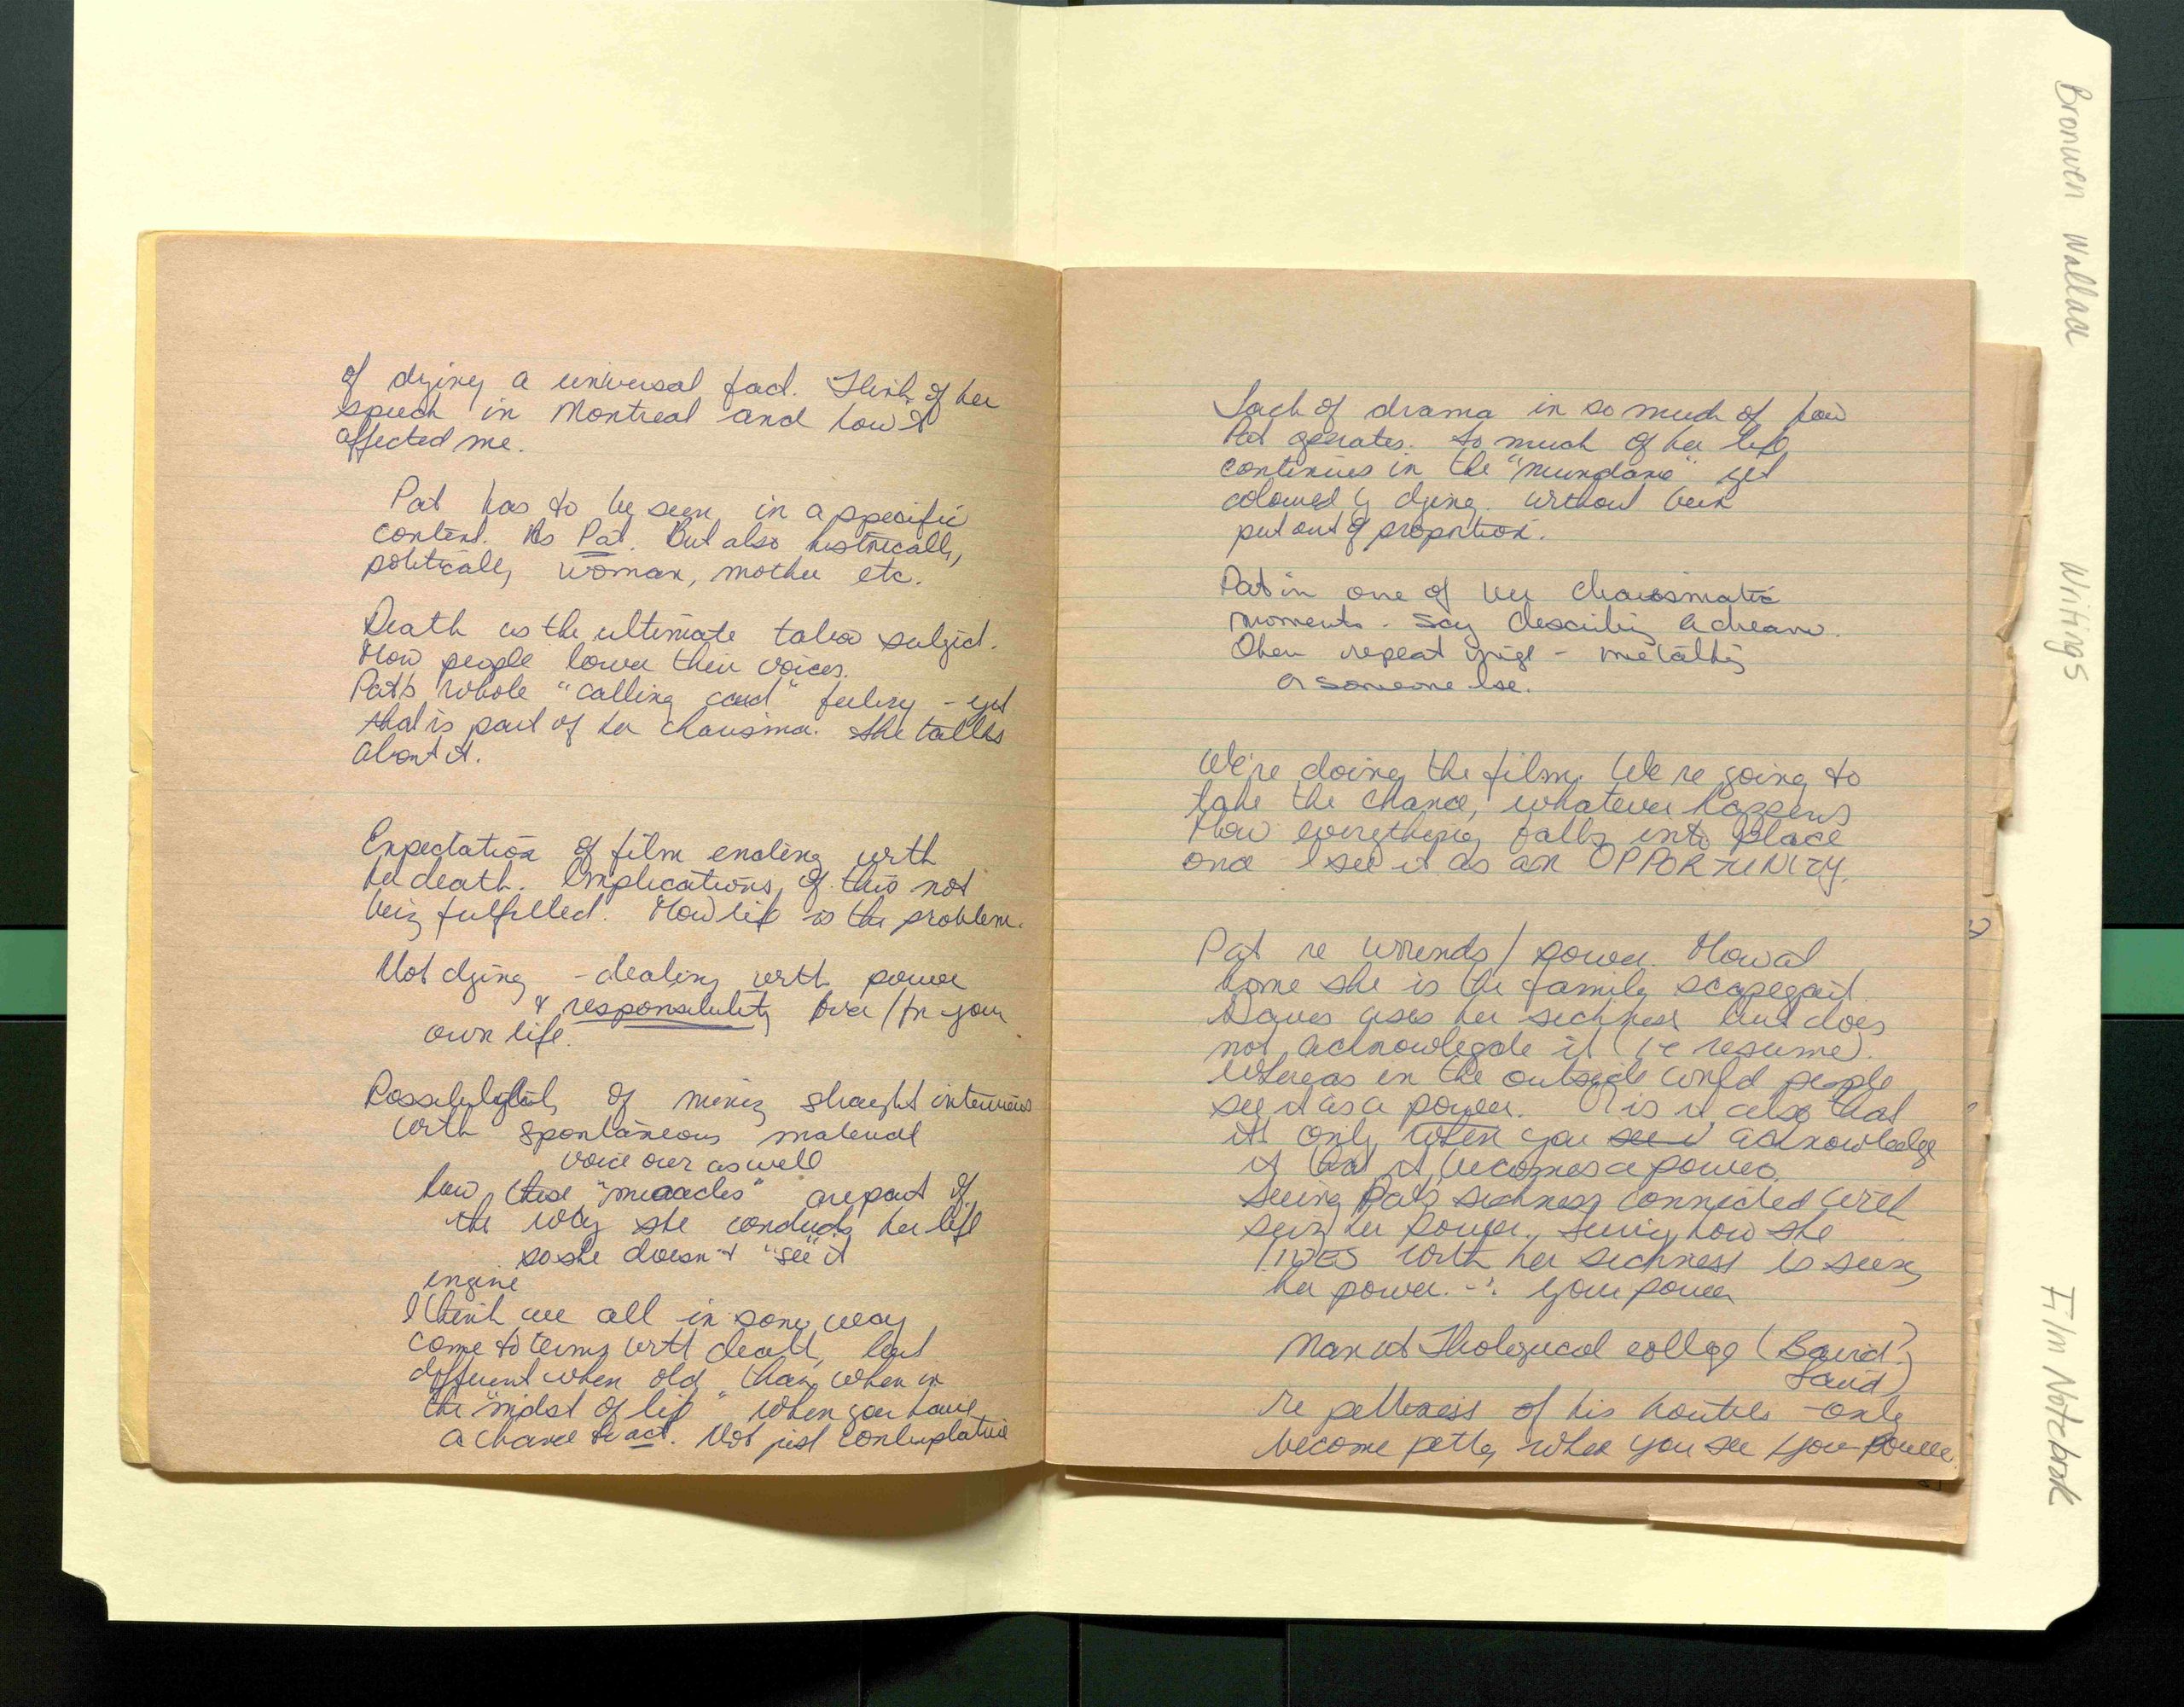 of dying a universal fact. Think of her
speech in Montreal and how it
affected me.
Pat has to be seen in a specific
context. As Pat. But also historically,
politically, woman, mother etc.
Death as the ultimate taboo subject.
How people lower their voices.
Pat's whole "calling card" feeling - yet
that is part of her charisma. She talks
about it.
Expectation of film ending with
her death. Implications of this not
being fulfilled. How life is the problem.
Not dying - dealing with power
& responsibility over / for your
own life.
Possibility of mixing straight interviews
with spontaneous material
voice over as well
how these "miracles" are part of
the way she conducts her life
so she doesn't "see" it
engine
I think we all in some way
come to terms with death, but
different when old than when in
the "midst of life" when you have
a chance to act. Not just contemplative
Lack of drama in so much of how
Pat operates. So much of her life
continues in the "mundane" yet
coloured by dying. without being
put out of proportion.
Pat in one of her charismatic
moments. Say describing a dream.
Then repeat image - me talking
or someone else.
We're doing the film. We're going to
take the chance, whatever happens
How everything falls into place
once I see it as an OPPORTUNITY.
Pat re wounds / power. How at
home she is the family scapegoat.
uses her sickness but does
not acknowledge it (ie resume).
Whereas in the outside world people
see it as a power. Or is it also that
it's only when you see it acknowledge
it that it becomes a power.
Seeing Pat's sickness connected with
seeing her power. Seeing how she
LIVES with her sickness is seeing
her power. ∴ your power
Man at Theological college (
re pettiness of his - only
become petty when you see your power
Bronwen Wallace
Writings
Film Notebook